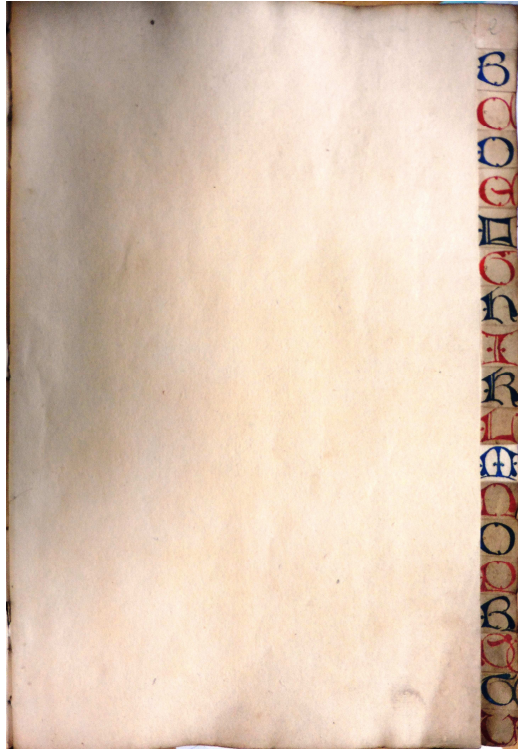 B
C
D
E
F
G
H
I
K
L
M
N
O
P
R
S
T
V